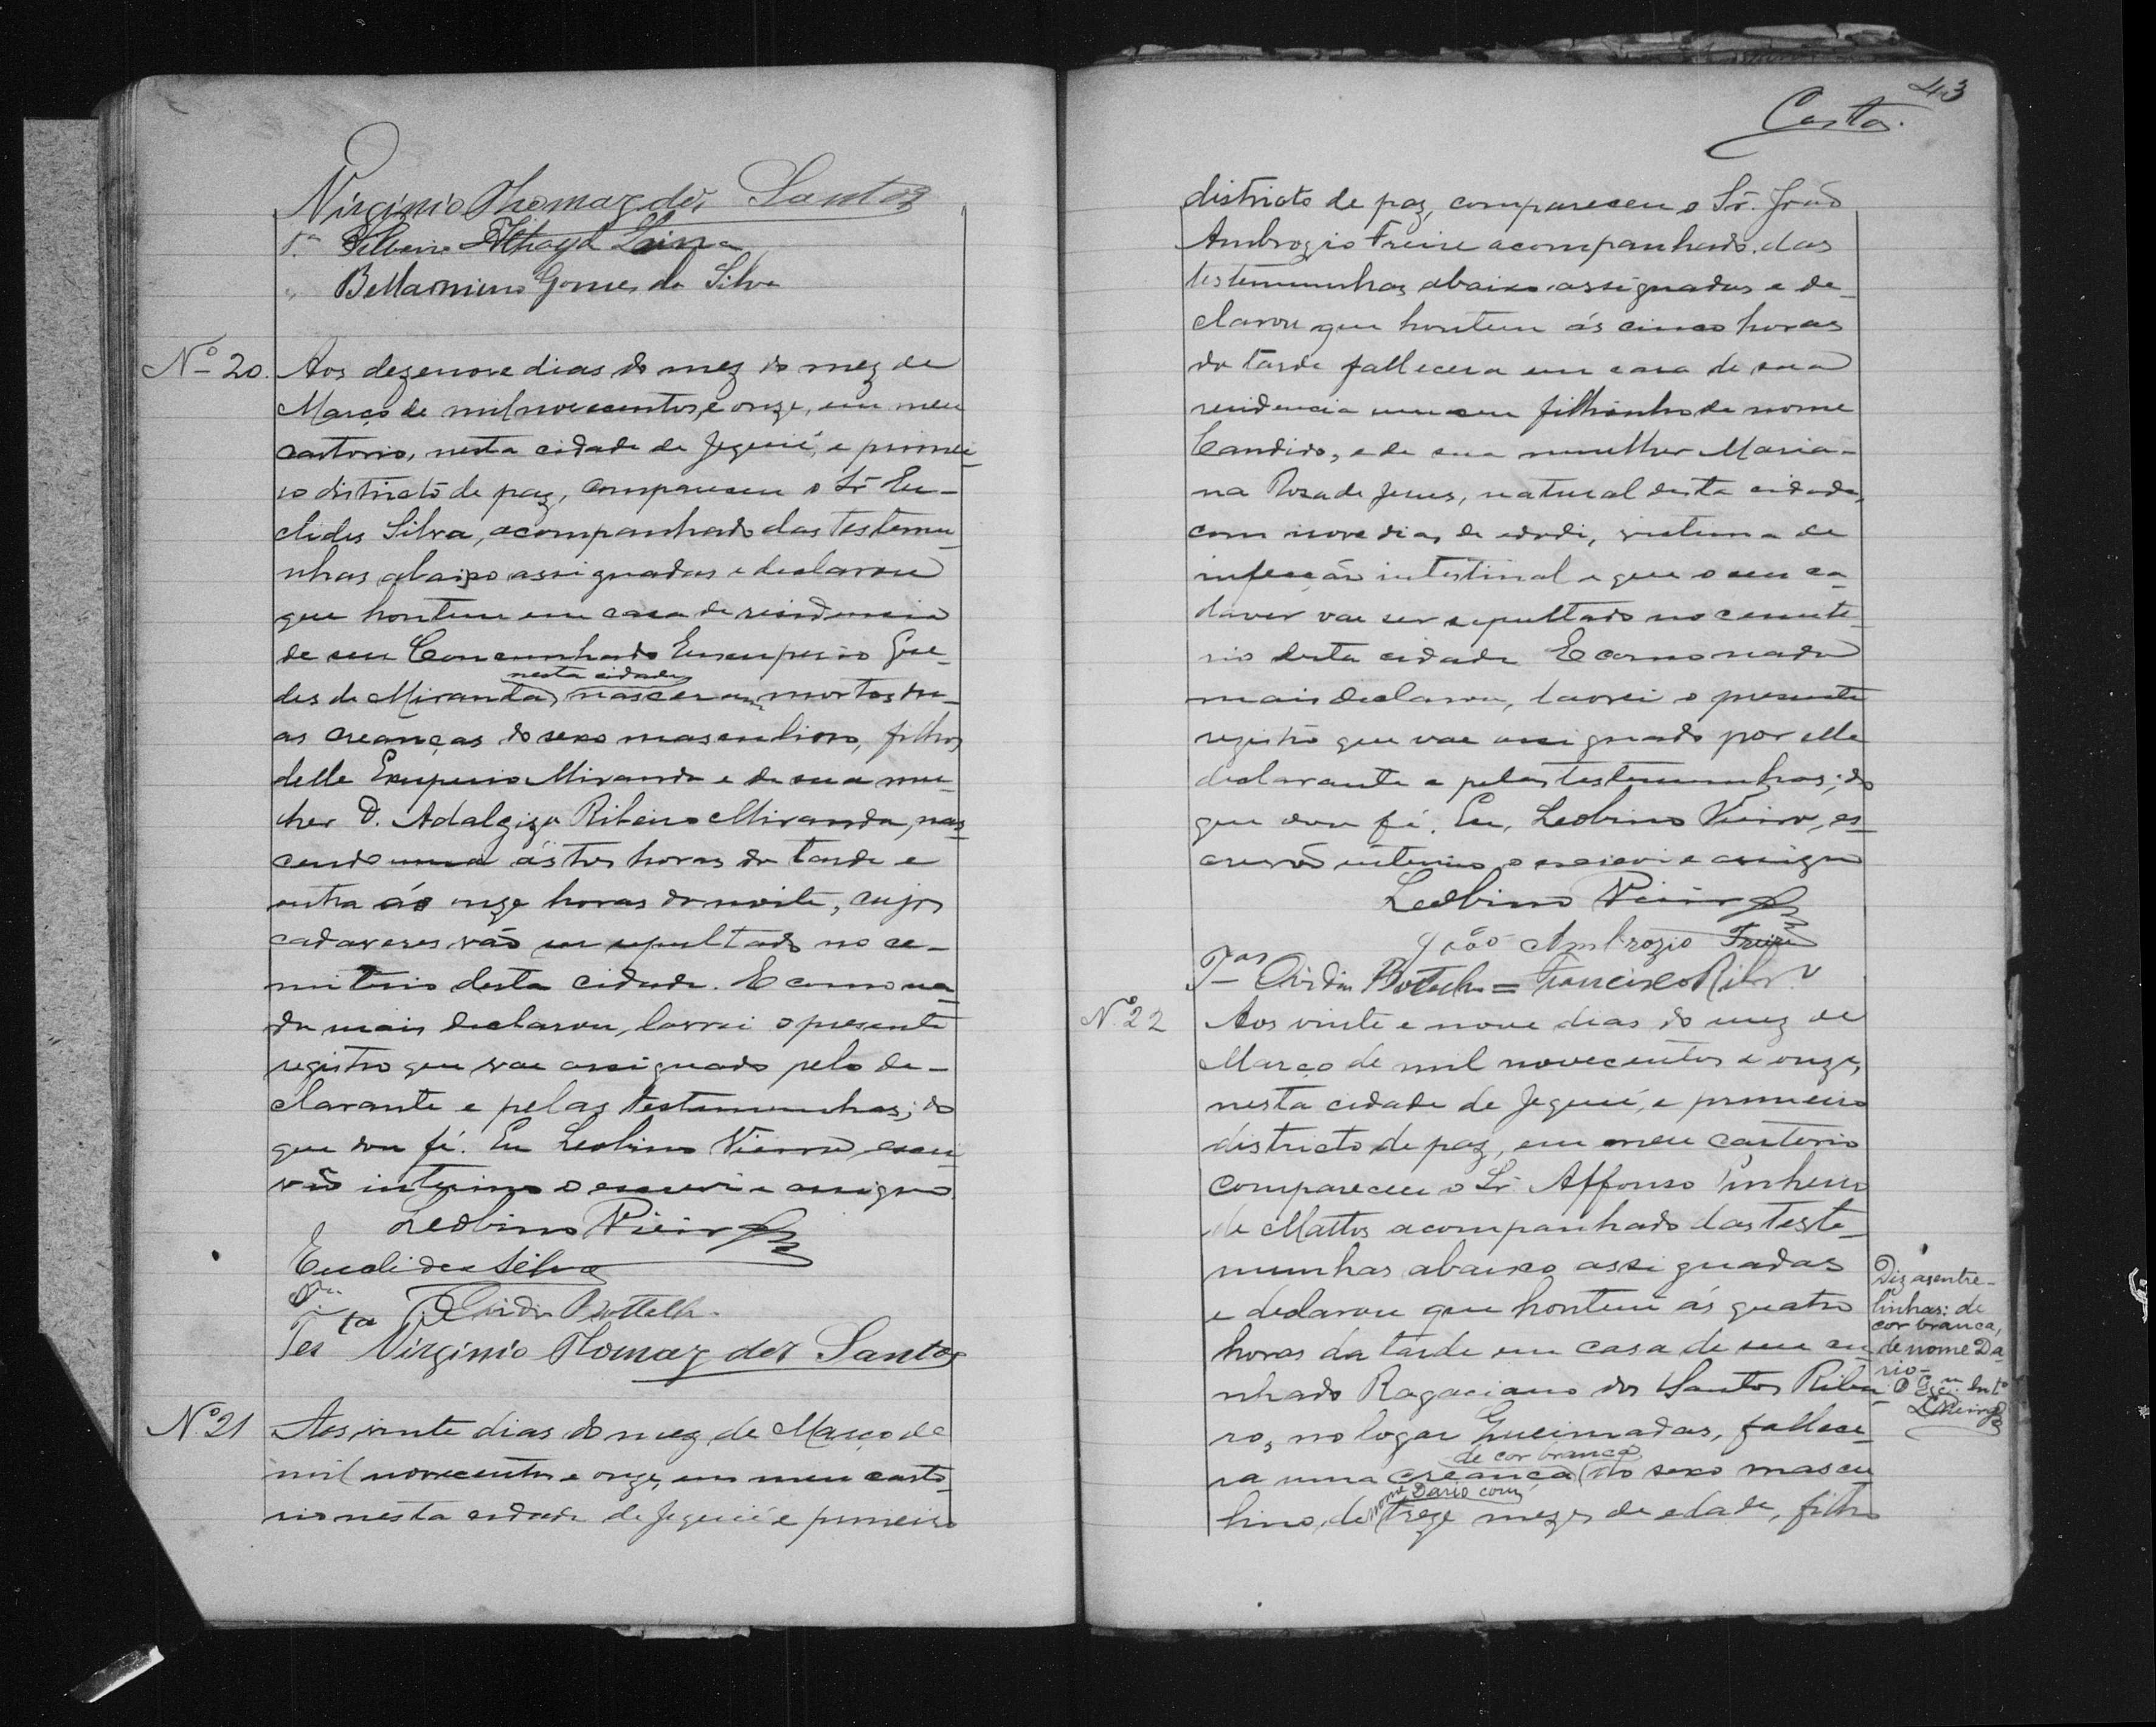 Virginio Thomaz dos Santos
Ta Silvino Athayd Lima
" Bellarmino Gomes da Silva
Nº 20. Aos dezenove dias do mez do mez de
Março de mil novecentos, e onze, em meu
cartorio, nesta cidade de Jequié, e primei-
ro districto de paz, compareceu o Sr. Eu-
clides Silva, acompanhado das testemu-
nhas abaixo assignadas e declarou
que hontem em casa de residencia
de seu Concunhado Exuperio Gue-
nesta cidade
des de Miranda, nasceram mortas du-
as creanças do sexo masculino, filhos
delle Exuperio Miranda e de sua mu-
lher D. Adalgiza Ribeiro Miranda, nas-
cendo uma ás tres horas da tarde e
outra ás onze horas da noite, cujos
cadaveres vão ser sepultados no ce-
miterio desta cidade. E como na-
da mais declarou, lavrei o presente
registro que vae assignado pelo de-
clarante e pelas testemunhas; do
que dou fé. Eu Leobino Vieira, escri-
vão interino o escrevi e assigno
Leobino Vieira
Euclides Silva
Ovidio Bottelho
Tes ta Virginio Thomaz dos Santos
Nº 21 Aos vinte dias do mez de Março de
mil novecentos e onze, em meu carto-
rio nesta cidade de Jequié e primeiro
43
Costa.
districto de paz, compareceu o Sr. João
Ambrozio Freire acompanhado das
testemunhas abaixo assignadas e de-
clarou que hontem ás cinco horas
da tarde fallecera em casa de sua
residencia um seu filhinho de nome
Candido, e de sua mulher Maria-
na Roza de Jesus, natural desta cidade,
com nove dias de edade, victima de
infecção intestinal e que o seu ca-
daver vae ser sepultado no cemite-
rio desta cidade E como nada
mais declarou, lavrei o presente
registro que vae assignado por elle
declarante e pelas testemunhas; do
que dou fé. Eu, Leobino Vieira, es-
crivão interino o escrevi e assigno
Leobino Vieira
João Ambrozio Freire
Tas Ovidio Botelho = Francisco Ribrº
Nº 22 Aos vinte e nove dias do mez de
Março de mil novecentos e onze,
nesta cidade de Jequié, e primeiro
districto de paz, em meu cartorio
compareceu o Sr. Affonso Pinheiro
de Mattos acompanhado das teste-
munhas abaixo assignadas
e declarou que hontem ás quatro
horas da tarde em casa de seu cu-
nhado Ragaciano dos Santos Ribei-
ro, no logar Queimadas, fallece-
de cor branca
ra uma creança (do sexo mascu-
nome Dario com
lino, de treze mezes de edade, filho
Diz as entre-
linhas: de
cor branca,
de nome Da-
rio-
O Escm. Intº
LVieira